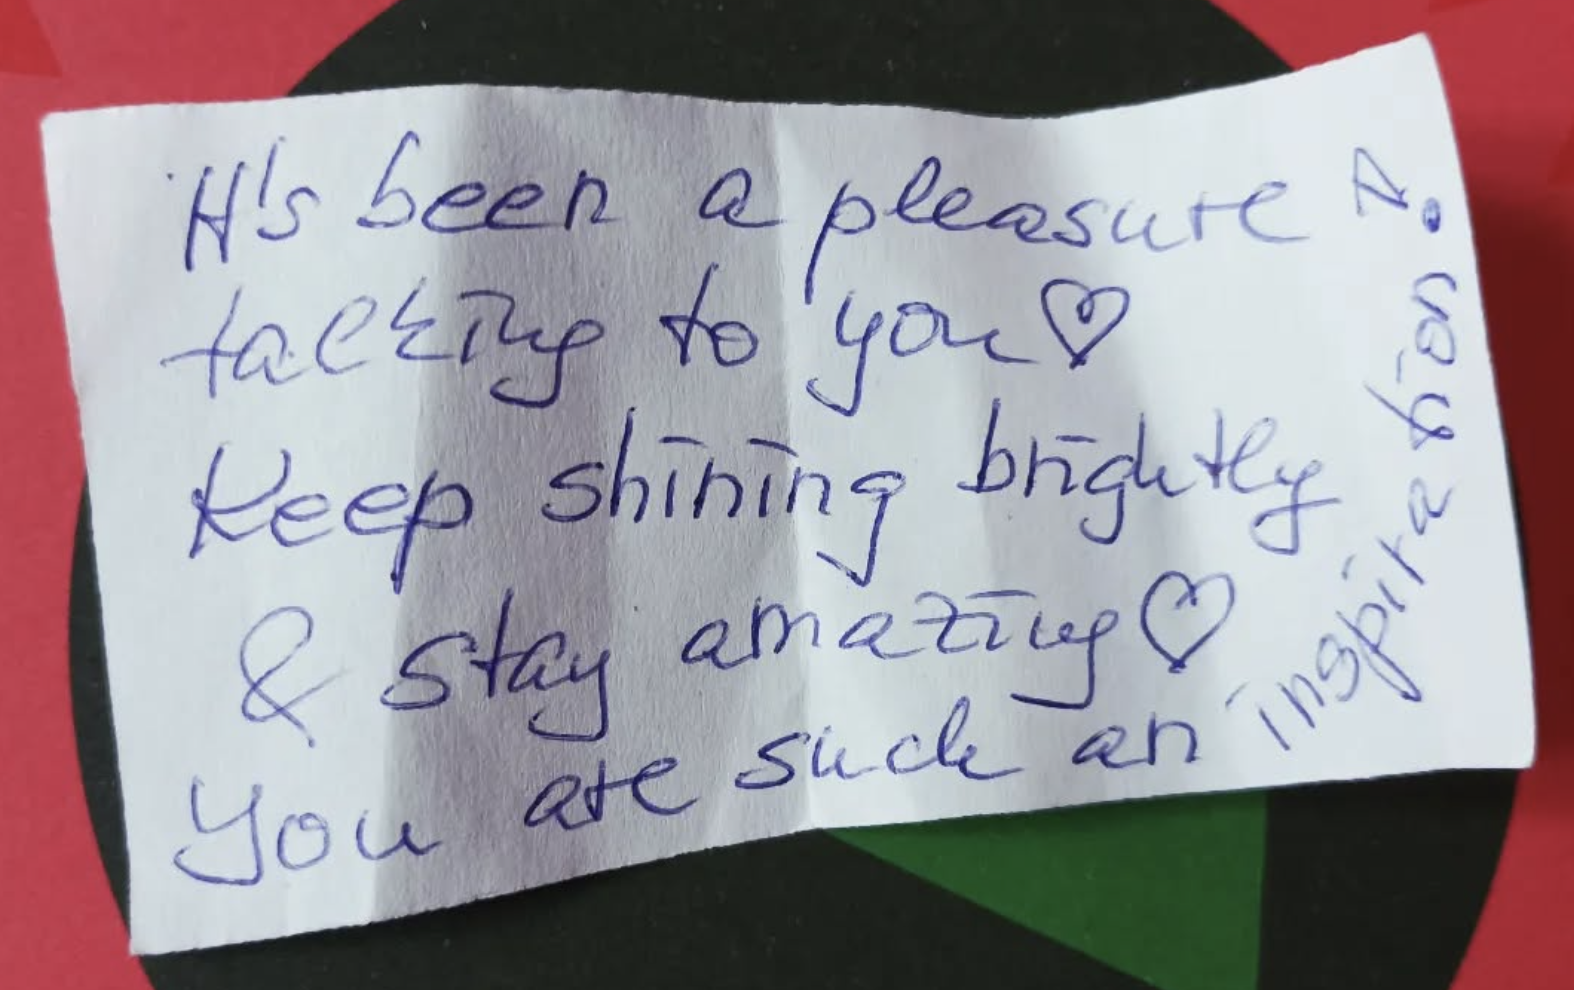 It's been a pleasure
talking to you♡
Keep shining brightly
& stay amazing♡
You are such an inspiration!